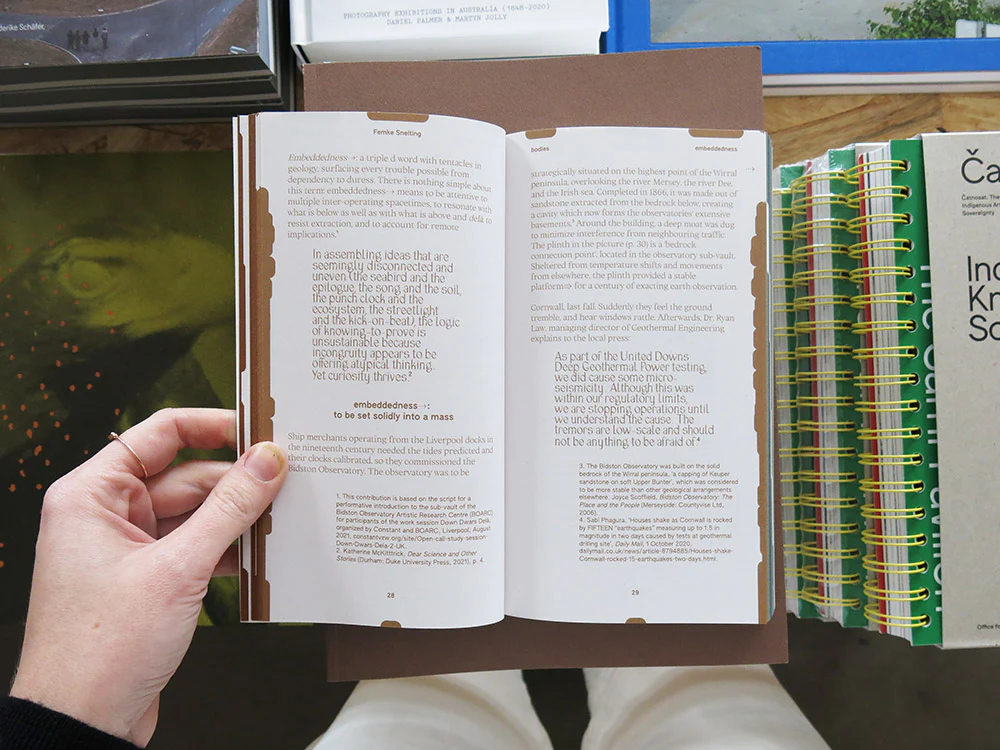 derike Schäfer,
PHOTOGRAPHY EXHIBITIONS IN AUSTRALIA (1848-2020)
DANIEL PALMER & MARTYN JOLLY
Femke Snelting
Embeddedness→: a triple d word with tentacles in
geology, surfacing every trouble possible from
dependency to duress. There is nothing simple about
this term: embeddedness→ means to be attentive to
multiple inter-operating spacetimes, to resonate with
what is below as well as with what is above and delà, to
resist extraction, and to account for remote
implications.¹
In assembling ideas that are
seemingly disconnected and
uneven (the seabird and the
epilogue, the song and the soil,
the punch clock and the
ecosystem, the streetlight
and the kick-on-beat), the logic
of knowing-to-prove is
unsustainable because
incongruity appears to be
offering atypical thinking.
Yet curiosity thrives.²
embeddedness→:
to be set solidly into a mass
Ship merchants operating from the Liverpool docks in
the nineteenth century needed the tides predicted and
their clocks calibrated, so they commissioned the
Bidston Observatory. The observatory was to be
1. This contribution is based on the script for a
performative introduction to the sub-vault of the
Bidston Observatory Artistic Research Centre (BOARC)
for participants of the work session Down Dwars Delà,
organized by Constant and BOARC, Liverpool, August
2021, constantvzw.org/site/Open-call-study-session-
Down-Dwars-Dela-2-UK.
2. Katherine McKittrick, Dear Science and Other
Stories (Durham: Duke University Press, 2021), p. 4.
28
bodies
embeddedness
→
strategically situated on the highest point of the Wirral
peninsula, overlooking the river Mersey, the river Dee,
and the Irish sea. Completed in 1866, it was made out of
sandstone extracted from the bedrock below, creating
a cavity which now forms the observatories' extensive
basements.³ Around the building, a deep moat was dug
to minimize interference from neighbouring traffic.
The plinth in the picture (p. 30) is a bedrock
connection point, located in the observatory sub-vault.
Sheltered from temperature shifts and movements
from elsewhere, the plinth provided a stable
platform⇒ for a century of exacting earth observation.
Cornwall, last fall. Suddenly they feel the ground
tremble, and hear windows rattle. Afterwards, Dr. Ryan
Law, managing director of Geothermal Engineering
explains to the local press:
As part of the United Downs
Deep Geothermal Power testing,
we did cause some micro-
seismicity. Although this was
within our regulatory limits,
we are stopping operations until
we understand the cause. The
tremors are low-scale and should
not be anything to be afraid of.⁴
3. The Bidston Observatory was built on the solid
bedrock of the Wirral peninsula, 'a capping of Keuper
sandstone on soft Upper Bunter', which was considered
to be more stable than other geological arrangements
elsewhere. Joyce Scoffield, Bidston Observatory: The
Place and the People (Merseyside: Countyvise Ltd,
2006).
4. Sabi Phagura, 'Houses shake as Cornwall is rocked
by FIFTEEN "earthquakes" measuring up to 1.5 in
magnitude in two days caused by tests at geothermal
drilling site', Daily Mail, 1 October 2020,
dailymail.co.uk/news/article-8794885/Houses-shake-
Cornwall-rocked-15-earthquakes-two-days.html.
29
Ča
Čatnosat. The
Indigenous Art
Sovereignty
Ind
Kn
So
Office fo